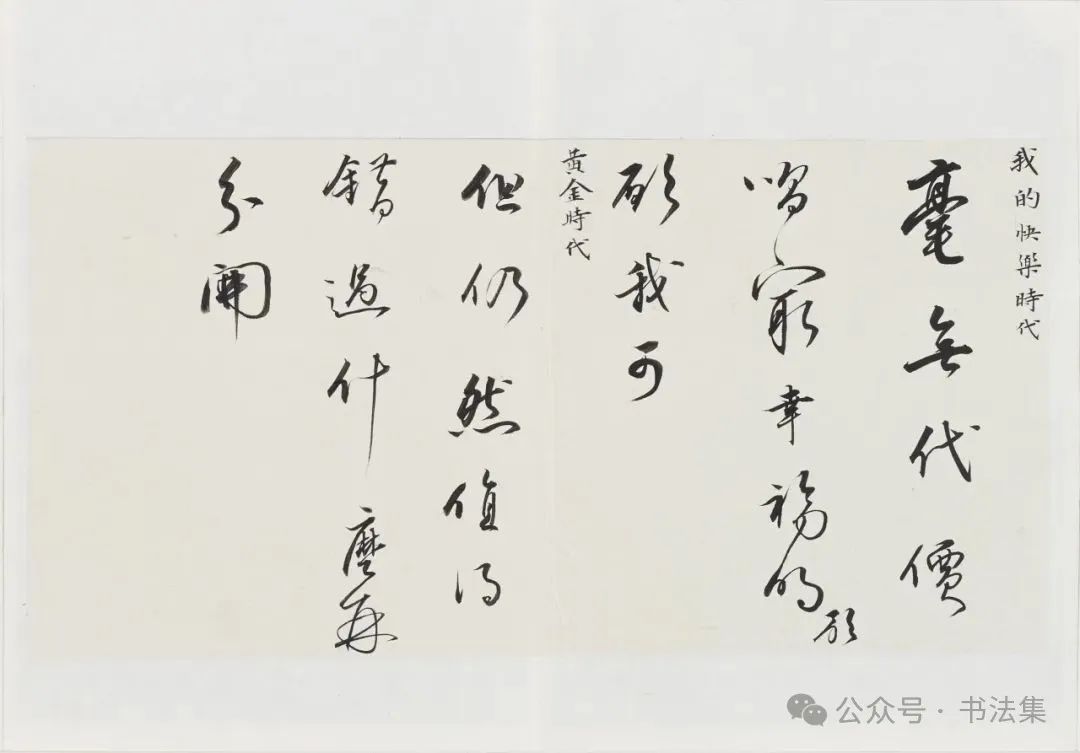 我的快樂時代
毫無代價
唱最幸福的歌
願我可
黄金時代
但仍然值得
錯過什麼再
分開
公众号·书法集